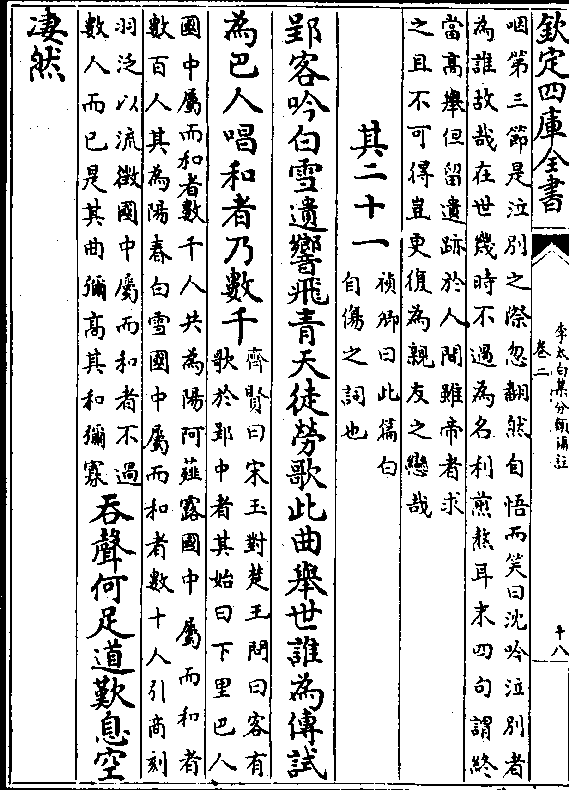 欽定四庫全書
李太白集分類補註
卷二
咽第三節是泣別之際忽翻然自悟而笑曰沈吟泣別者
為誰故哉在世幾時不過為名利煎熬耳末四句謂終
當高舉但留遺跡於人間雖帝者求
之且不可得豈更復為親友之戀哉
其二十一
禎卿曰此篇白
自傷之詞也
郢客吟白雪遺響飛青天徒勞歌此曲舉世誰為傳試
為巴人唱和者乃數千
齊賢曰宋玉對楚王問曰客有
歌於郢中者其始曰下里巴人
國中屬而和者數千人其為陽阿薤露國中屬而和者
數百人其為陽春白雪國中屬而和者數十人引商刻
羽泛以流徵國中屬而和者不過
數人而已是其曲彌高其和彌寡
吞聲何足道歎息空
凄然